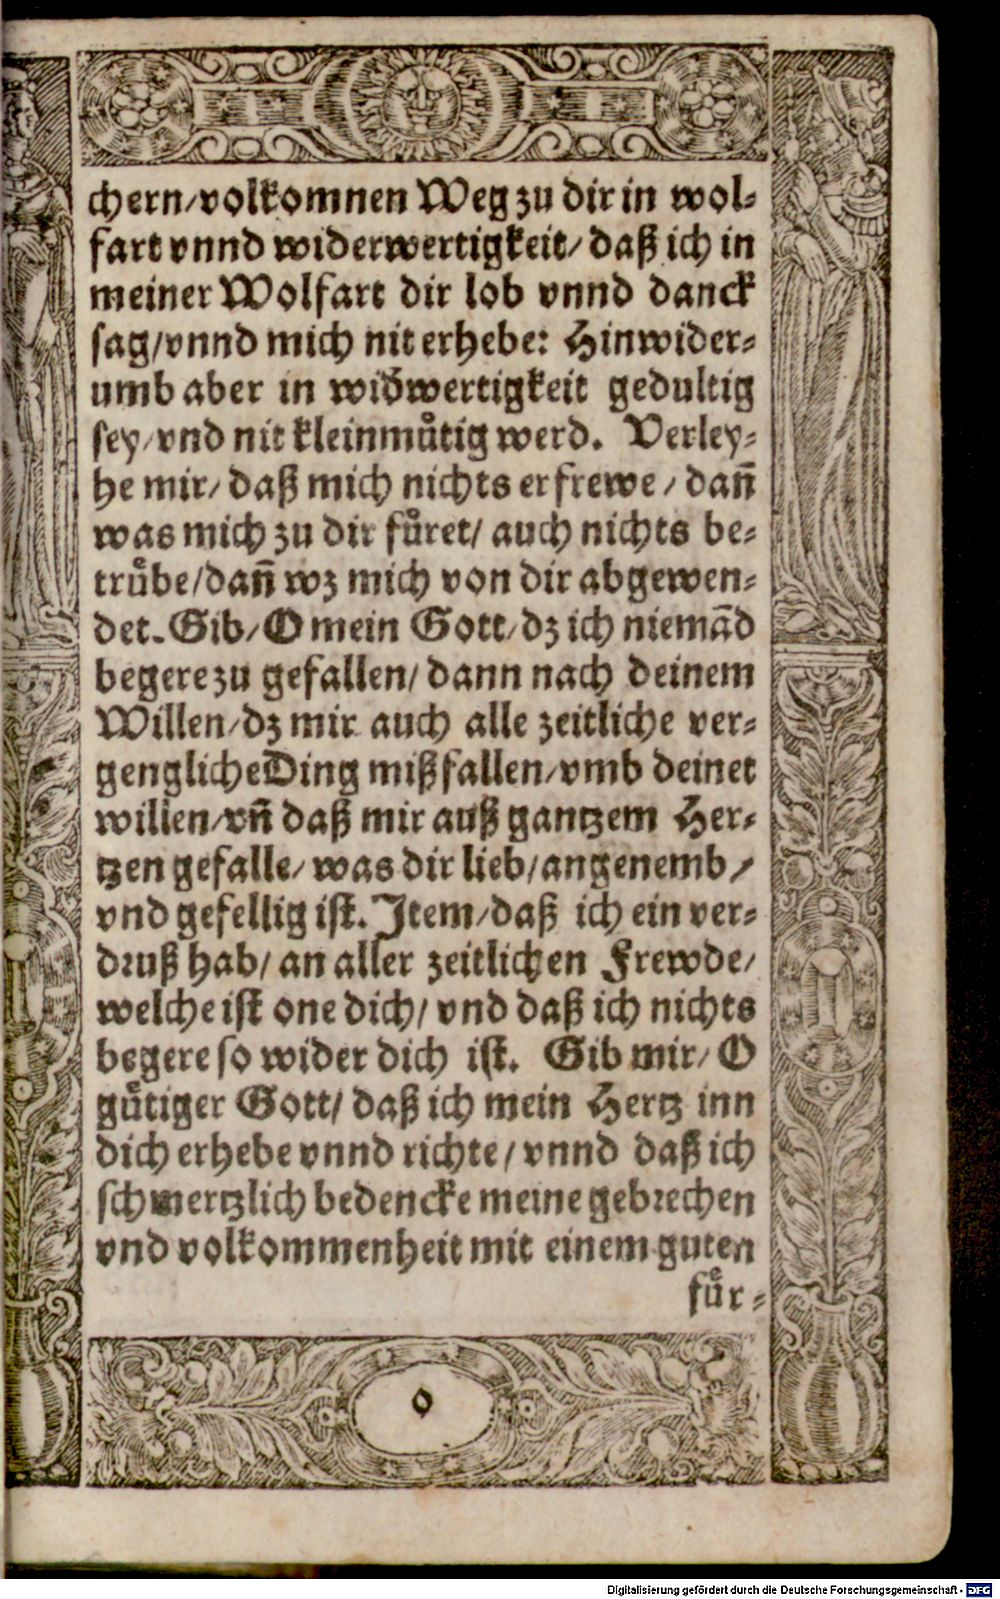 chern/volkomnen Weg zu dir in wol-
fart vnnd widerwertigkeit/ daß ich in
meiner Wolfart dir lob vnnd danck
sag/vnnd mich nit erhebe: Hinwider-
umb aber in wid̄wertigkeit gedultig
sey/vnd nit kleinmuͤtig werd. Verley-
he mir/ daß mich nichts erfrewe/ dañ
was mich zu dir fuͤret/ auch nichts be-
truͤbe/dañ wz mich von dir abgewen-
det. Gib/O mein Gott/dz ich niemād
begere zu gefallen/ dann nach deinem
Willen/dz mir auch alle zeitliche ver-
gengliche Ding mißfallen/vmb deinet
willen/vñ daß mir auß gantzem Her-
tzen gefalle/ was dir lieb/angenemb/
vnd gefellig ist. Item/daß ich ein ver-
druß hab/ an aller zeitlichen Frewde/
welche ist one dich/ vnd daß ich nichts
begere so wider dich ist. Gib mir/ O
guͤtiger Gott/ daß ich mein Hertz inn
dich erhebe vnnd richte/ vnnd daß ich
schmertzlich bedencke meine gebrechen
vnd volkommenheit mit einem guten
fuͤr-
o
Digitalisierung gefördert durch die Deutsche Forschungsgemeinschaft - DFG